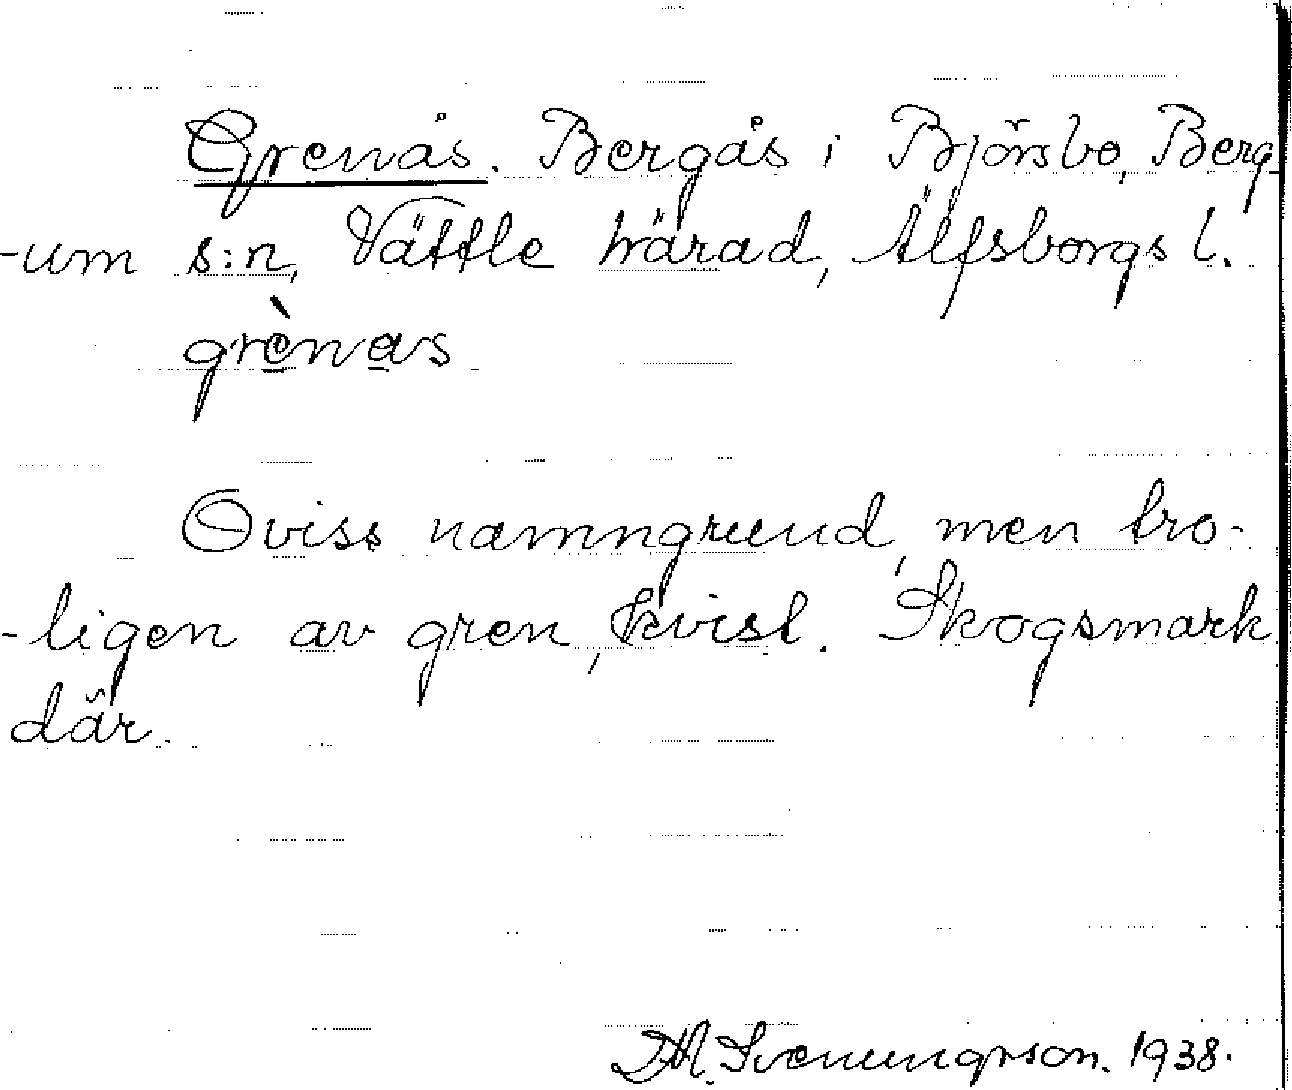 Grenås. Bergås i Björsbo, Berg-
-um s:n, Vättle härad, Älfsborgs l.
grènas
Oviss namngrund, men tro-
-ligen av gren, kvist. Skogsmark
där.
D.A. Svenungsson. 1938.